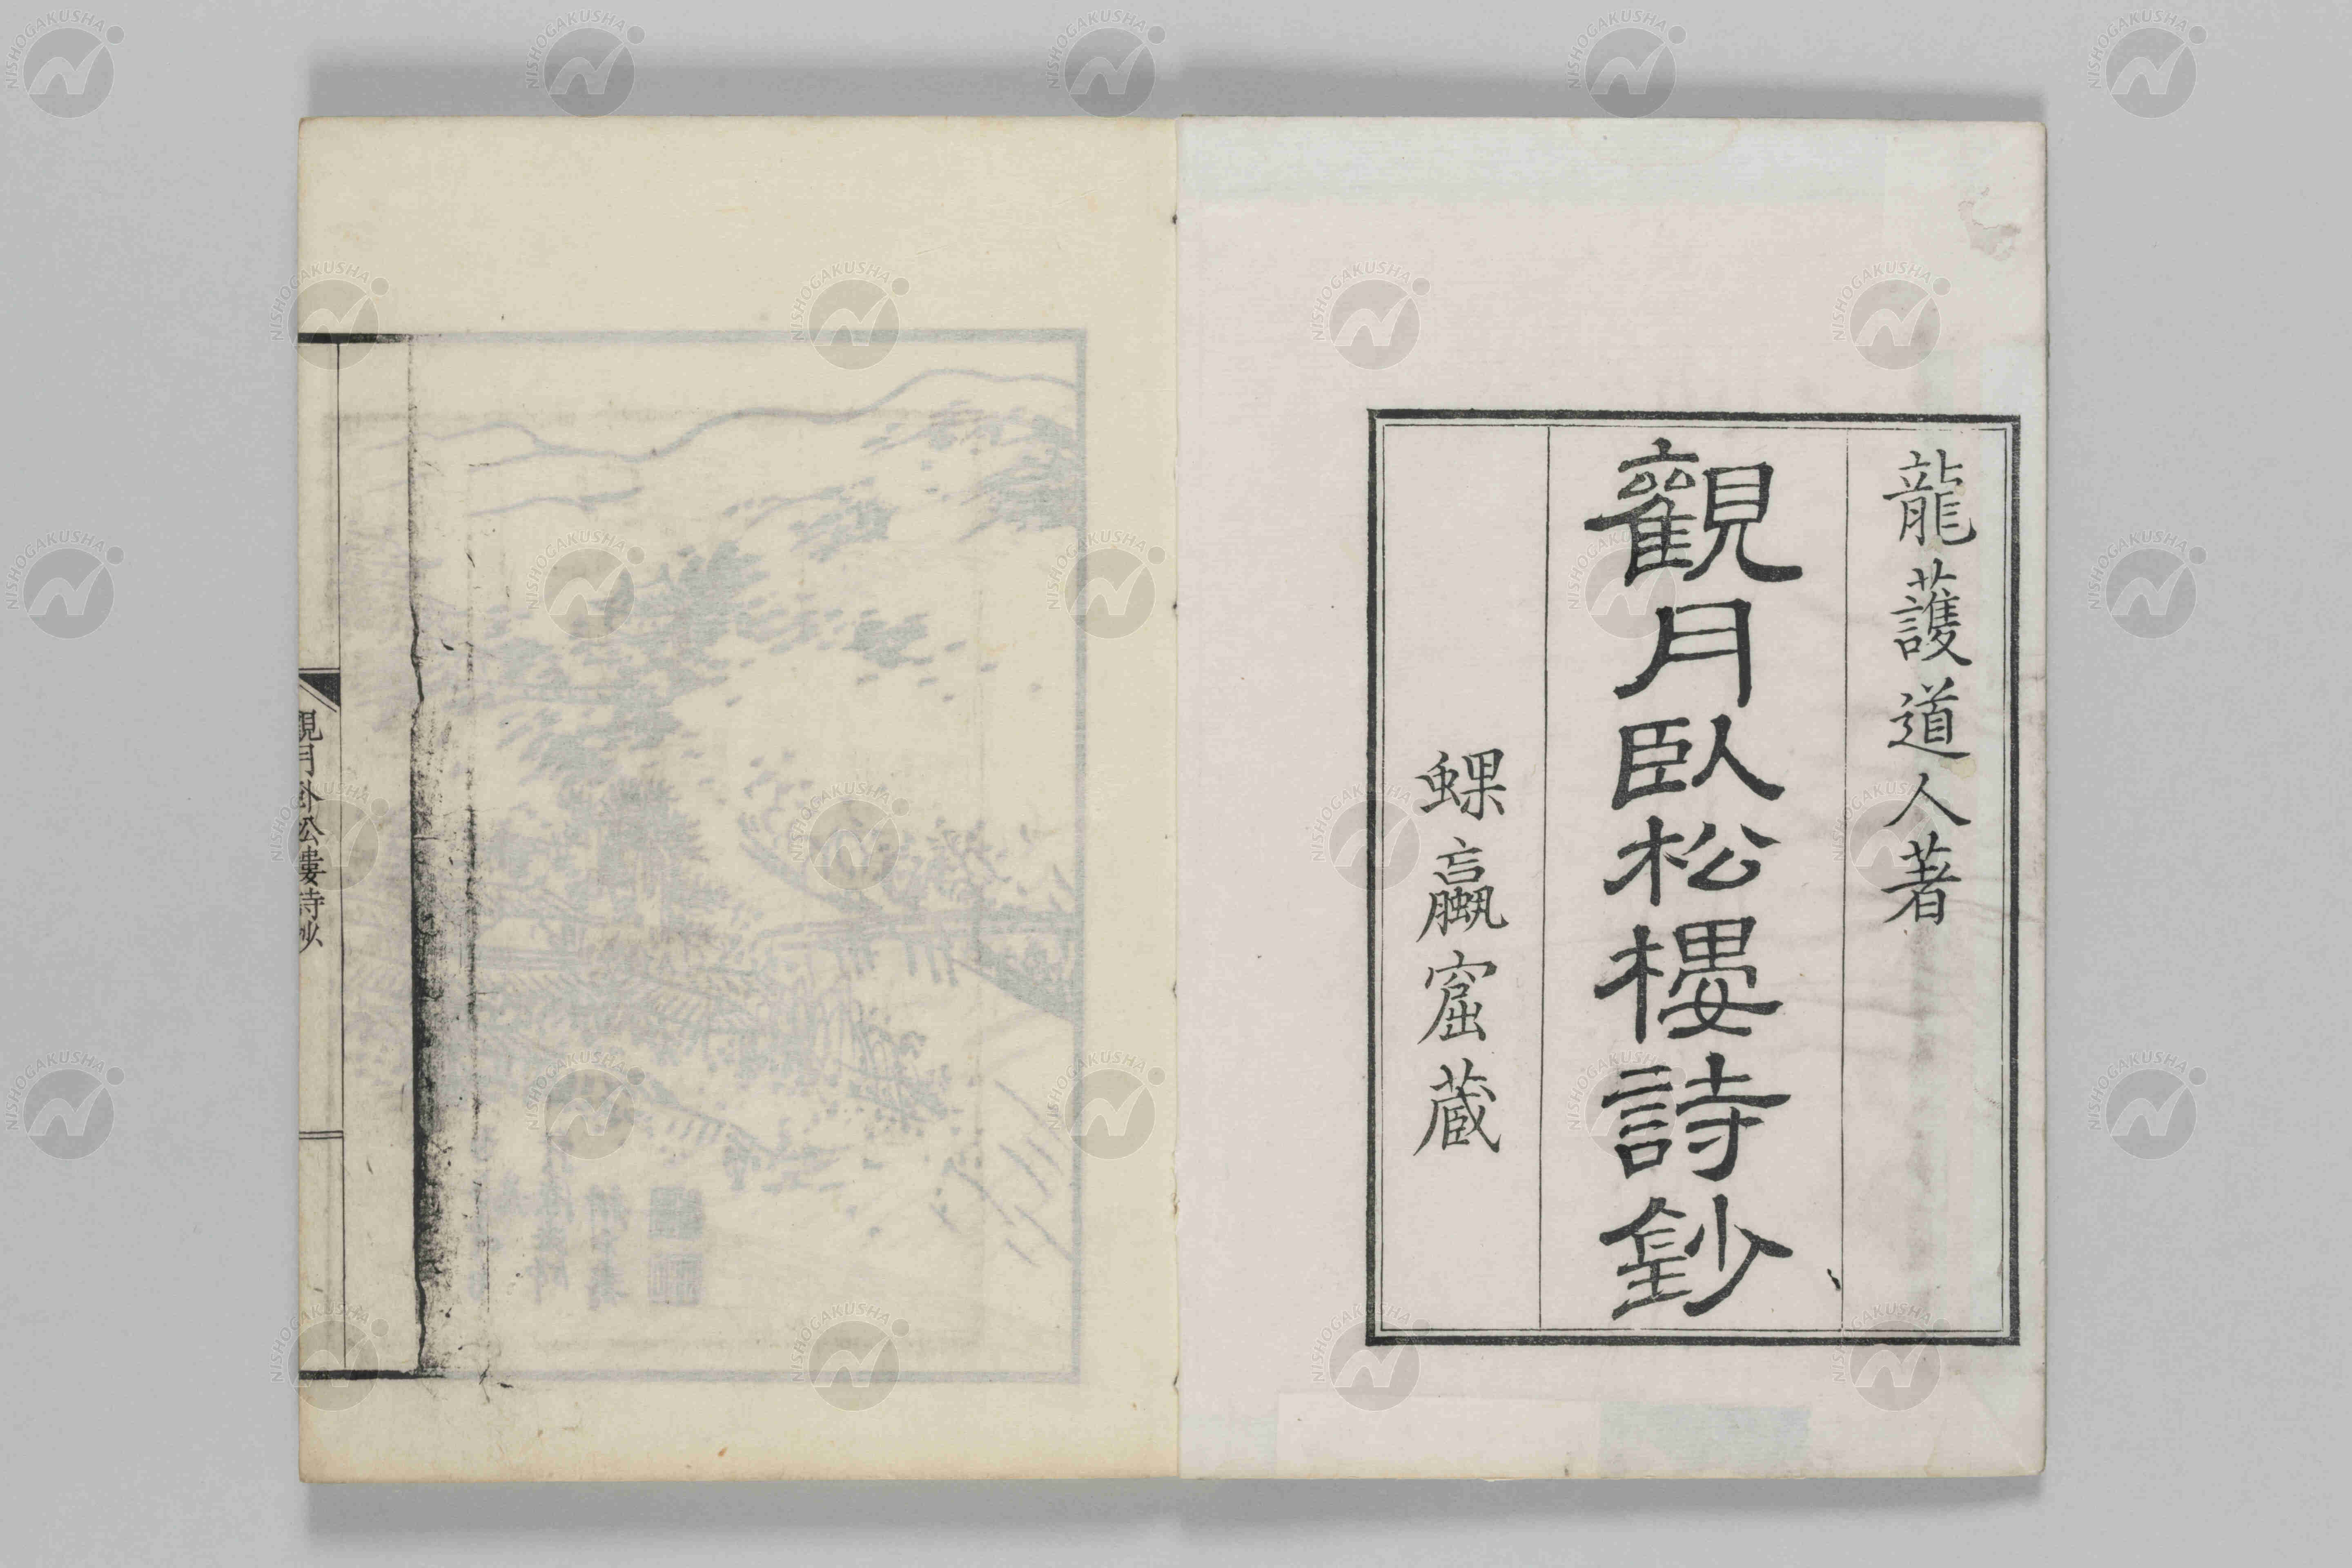 龍護道人著
觀月臥松樓詩鈔
蜾蠃窟蔵
觀月臥松樓詩鈔
NISHOGAKUSHA